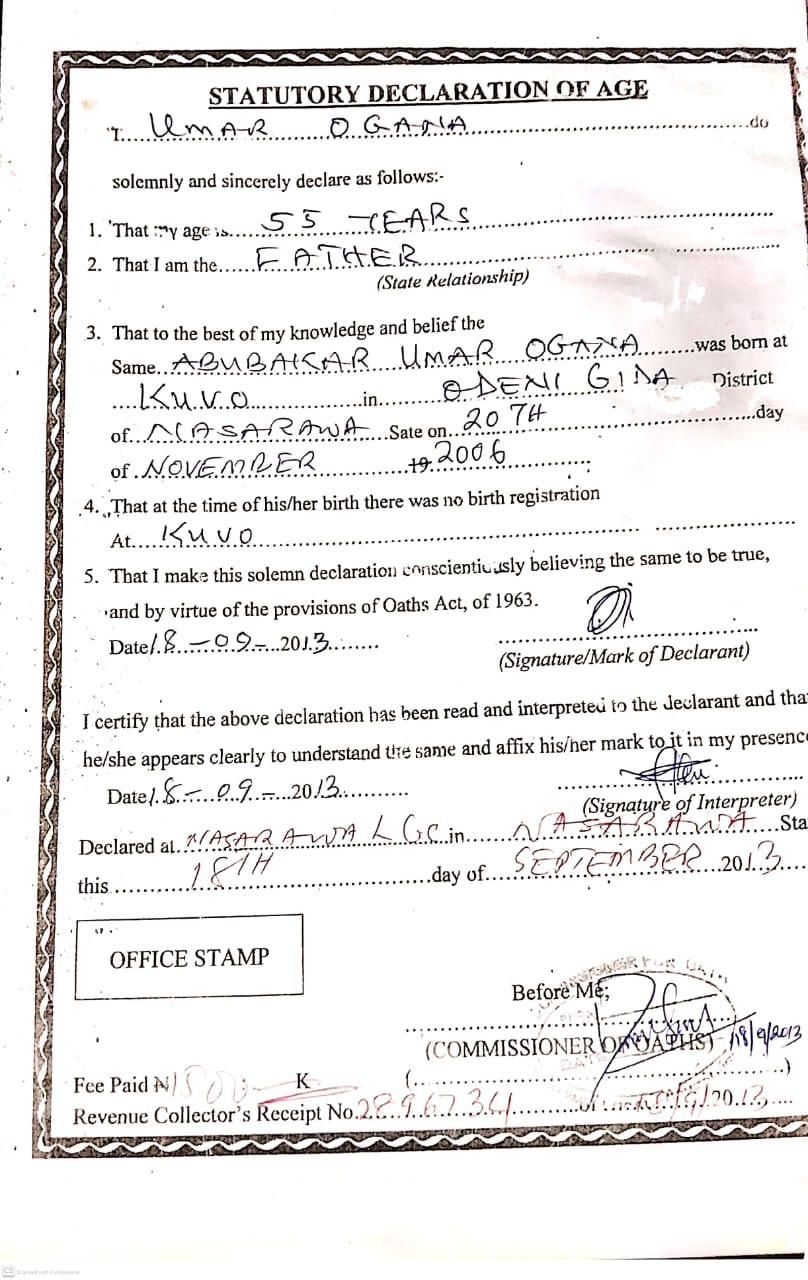 STATUTORY DECLARATION OF AGE
I. UMAR OGANA do
solemnly and sincerely declare as follows:-
1. That my age is 55 YEARS
2. That I am the FATHER
(State Relationship)
3. That to the best of my knowledge and belief the
Same ABUBAKAR UMAR OGANA was born at
KUVO in ODENI GIDA District
of NASARAWA Sate on 20TH day
of NOVEMBER 19 2006
4. That at the time of his/her birth there was no birth registration
At KUVO
5. That I make this solemn declaration conscientiously believing the same to be true,
and by virtue of the provisions of Oaths Act, of 1963.
Date 18-09-2013
(Signature/Mark of Declarant)
I certify that the above declaration has been read and interpreted to the declarant and tha
he/she appears clearly to understand the same and affix his/her mark to it in my presence
Date 18-09-2013
(Signature of Interpreter)
Declared at NASARAWA LGC in NASARAWA Sta
this 18TH day of SEPTEMBER 2013
OFFICE STAMP
Before Me;
(COMMISSIONER OF OATHS) 18/9/2013
Fee Paid ₦ K
Revenue Collector's Receipt No. 28967334 of 2013
CS Scanned with CamScanner